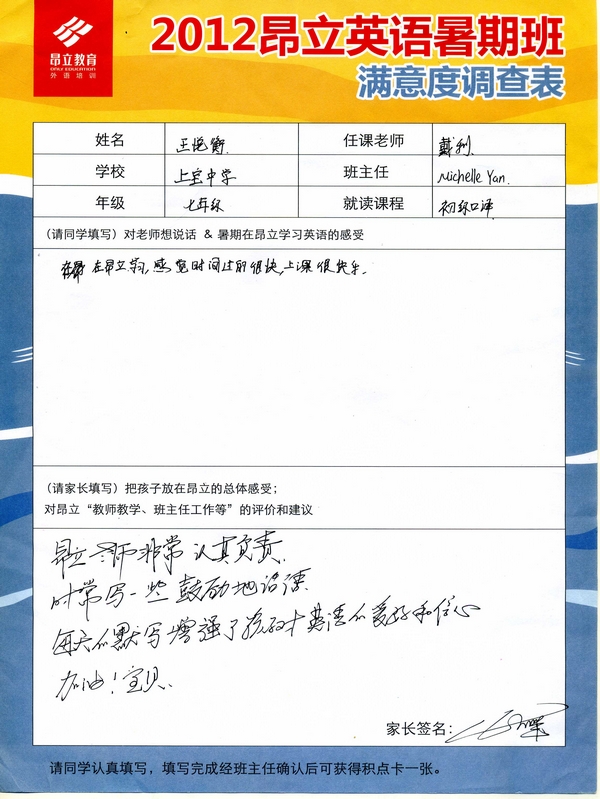 昂立教育
ONLY EDUCATION
外语培训
2012昂立英语暑期班
满意度调查表
姓名 王悦衡 任课老师 戴利
学校 上宝中学 班主任 Michelle Yan.
年级 七年级 就读课程 初级口译
(请同学填写) 对老师想说话 & 暑期在昂立学习英语的感受
在昂立学习,感觉时间过的很快,上课很快乐.
(请家长填写) 把孩子放在昂立的总体感受;
对昂立“教师教学、班主任工作等”的评价和建议
昂立老师非常认真负责.
时常写一些鼓励地话语
每天的默写增强了孩子对英语的爱好和信心
加油!宝贝.
家长签名:
请同学认真填写,填写完成经班主任确认后可获得积点卡一张。